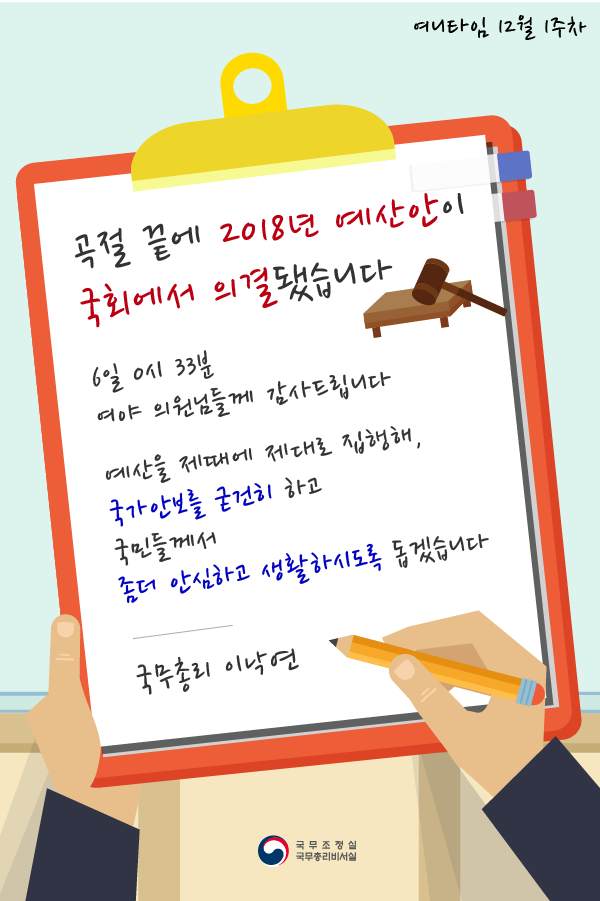 여니타임 12월 1주차
곡절 끝에 2018년 예산안이
국회에서 의결됐습니다
6일 0시 33분
여야 의원님들께 감사드립니다
예산을 제때에 제대로 집행해,
국가안보를 굳건히 하고
국민들께서
좀더 안심하고 생활하시도록 돕겠습니다
국무총리 이낙연
국무조정실
국무총리비서실